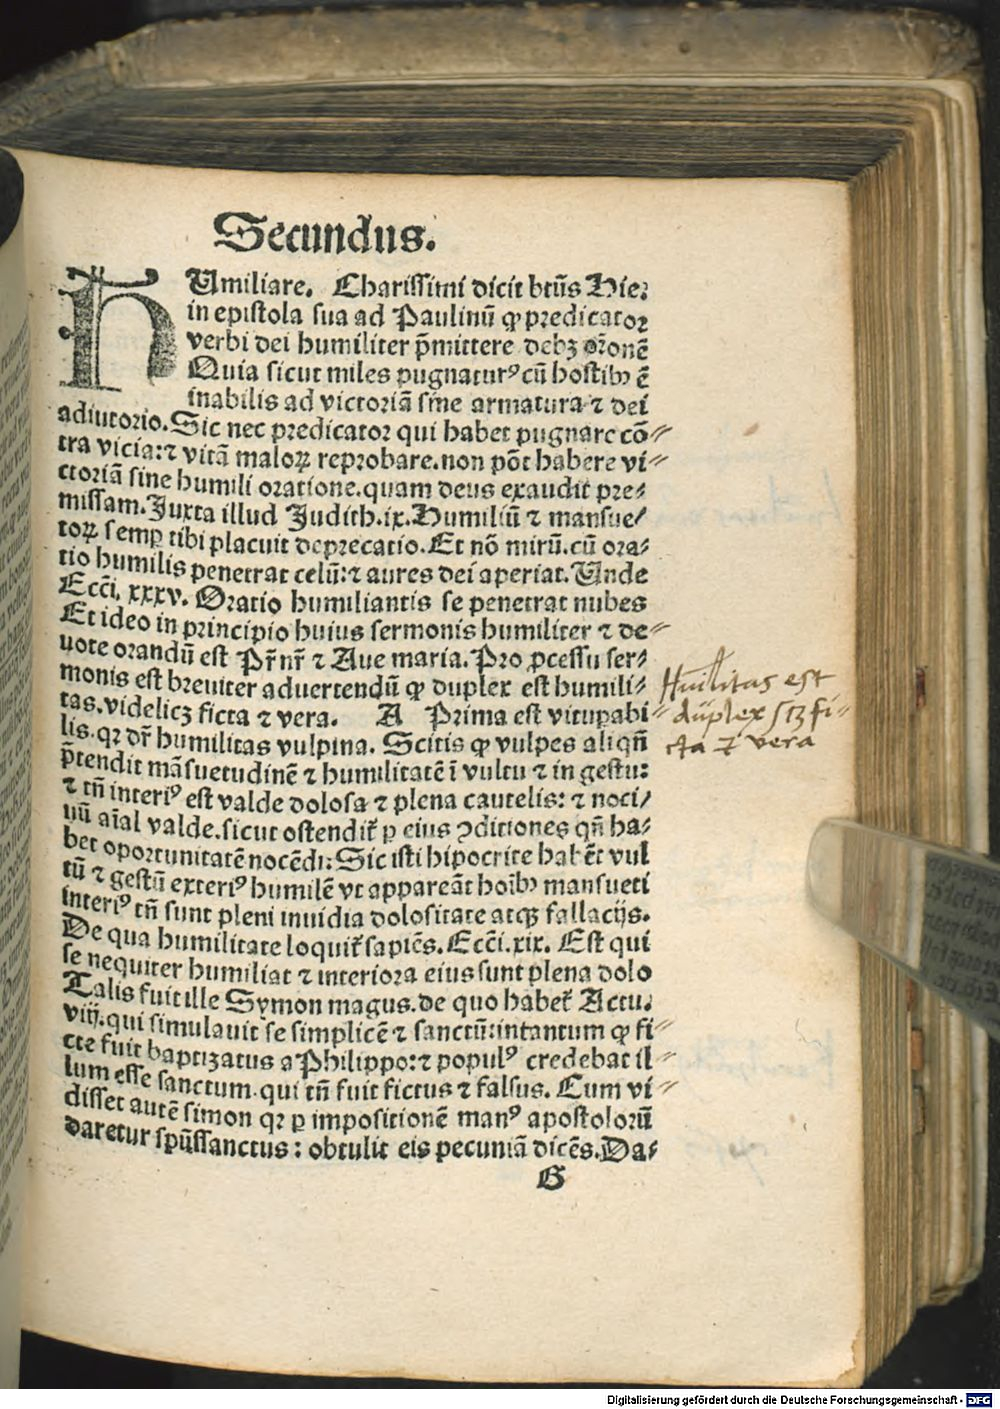 Secundus.
HUmiliare. Charissimi dicit btūs Hie⁊
in epistola sua ad Paulinū ꝙ predicator
verbi dei humiliter p̄mittere debꝫ oronē
Quia sicut miles pugnaturꝰ cū hostibꝰ ē
inabilis ad victoriā sine armatura ⁊ dei
adiutorio. Sic nec predicator qui habet pugnare cō⸗
tra vicia: ⁊ vitā maloꝝ reprobare. non pōt habere vi⸗
ctoriā sine humili oratione. quam deus exaudit pre⸗
missam. Juxta illud Judith. ix. Humiliū ⁊ mansue⸗
toꝝ semꝑ tibi placuit deprecatio. Et nō mirū. cū ora⸗
tio humilis penetrat celū: ⁊ aures dei aperiat. Unde
Ecci̅. xxxv. Oratio humiliantis se penetrat nubes
Et ideo in principio huius sermonis humiliter ⁊ de⸗
uote orandū est Pr̄ nr̄ ⁊ Aue maria. Pro ꝓcessu ser⸗
monis est breuiter aduertendū ꝙ duplex est humili⸗
tas. videlicꝫ ficta ⁊ vera. A Prima est vitupabi⸗
lis. qꝛ dr̄ humilitas vulpina. Scitis ꝙ vulpes aliqn̄
p̄tendit māsuetudinē ⁊ humilitatē ī vultu ⁊ in gestu:
⁊ tn̄ interiꝰ est valde dolosa ⁊ plena cautelis: ⁊ noci⸗
uū aīal valde. sicut ostendit̄ ꝑ eius ꝯditiones qn̄ ha⸗
bet oportunitatē nocēdi: Sic isti hipocrite habēt vul
tū ⁊ gestū exteriꝰ humilē vt appareāt hoībꝰ mansueti
interiꝰ tn̄ sunt pleni inuidia dolositate atqꝫ fallacijs.
De qua humilitate loquit̄ sapiēs. Ecci̅. xix. Est qui
se nequiter humiliat ⁊ interiora eius sunt plena dolo
Talis fuit ille Symon magus. de quo habet̄ Actu.
viij. qui simulauit se simplicē ⁊ sanctū: intantum ꝙ fi⸗
cte fuit baptizatus a Philippo: ⁊ populꝰ credebat il⸗
lum esse sanctum. qui tn̄ fuit fictus ⁊ falsus. Cum vi⸗
disset autē simon qꝛ ꝑ impositionē manꝰ apostolorū
daretur spūssanctus: obtulit eis pecuniā dicēs. Da⸗
G
Hūilitas est
duplex sꝫ fi⸗
cta ⁊ vera
Digitalisierung gefördert durch die Deutsche Forschungsgemeinschaft - DFG